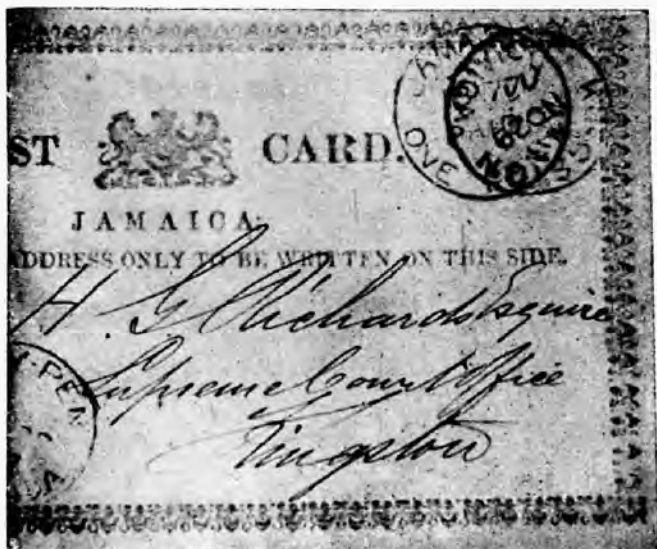 ST CARD.
JAMAICA.
ADDRESS ONLY TO BE WRITTEN ON THIS SIDE.
H. G. Richards Esquire
Supreme Court Office
Kingston
PEN
ONE